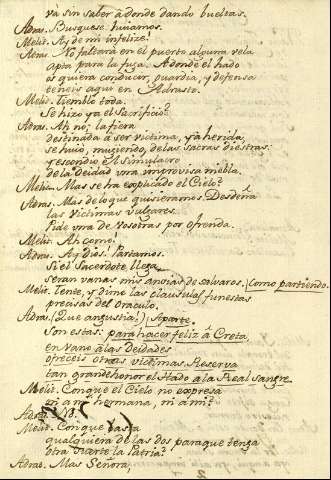 va sin saber â donde dando bueltas.
Adras. Busquese. huiamos.
Melit. Ay de mi infelize!
Adras. No faltarà en el puerto alguna vela
apta para la fuga. Adonde el hado
os quiera conducir, guardia, y defensa
teneis aqui en Adrasto.
Melit. Tiemblo toda.
Se hizo ya el Sacrificio?
Adras. Ah no; la fiera
destinada à ser victima, ya herida,
se huiò, mugiendo, de las sacras diestras:
y escondio el Simulacro
de la Deidad una improvisa niebla.
Melit. Mas se ha explicado el Cielo?
Adras. Mas de lo que quisieramos. Desdeña
las victimas vulgares.
Pide una de vosotras por ofrenda.
Melit. Ah como!
Adras. Ay Dios! Partamos.
Si el Sacerdote llega,
seran vanas mis ansias de salvaros. (Como partiendo.
Melit. Tente, y dime las clausulas funestas
precisas del Oraculo.
Adras. (Que angustia!) Aparte.
Son estas: para hacer feliz â Creta,
en vano â las Deidades
ofreceis otras victimas. Reserva
tan grande honor el Hado a la Real sangre.
Melit. Conque el Cielo no expresa
ni a mi hermana, ni à mi?
Adras. No.
Melit. Conque basta
qualquiera de las dos para que tenga
otra suerte la Patria?
Adras. Mas Señora,